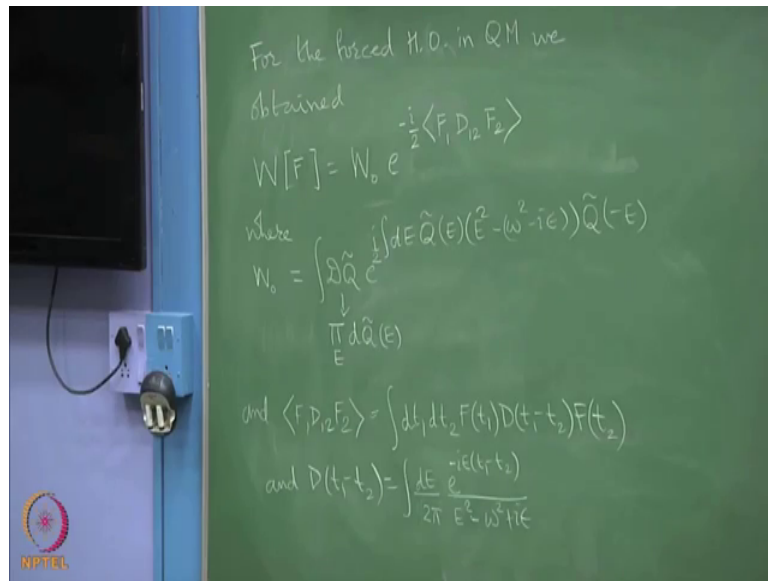 For the forced H.O. in QM we
obtained
W[F] = W₀ e^{-i/2 ⟨F₁ D₁₂ F₂⟩}
where
W₀ = ∫ DQ̃ e^{i/2 ∫ dE Q̃(E)(E² - (ω² - iϵ)) Q̃(-E)}
↓
π_E dQ̃(E)
and ⟨F₁ D₁₂ F₂⟩ = ∫ dt₁ dt₂ F(t₁) D(t₁-t₂) F(t₂)
and D(t₁-t₂) = ∫ dE/2π e^{-iE(t₁-t₂)}/E² - ω² + iϵ
NPTEL